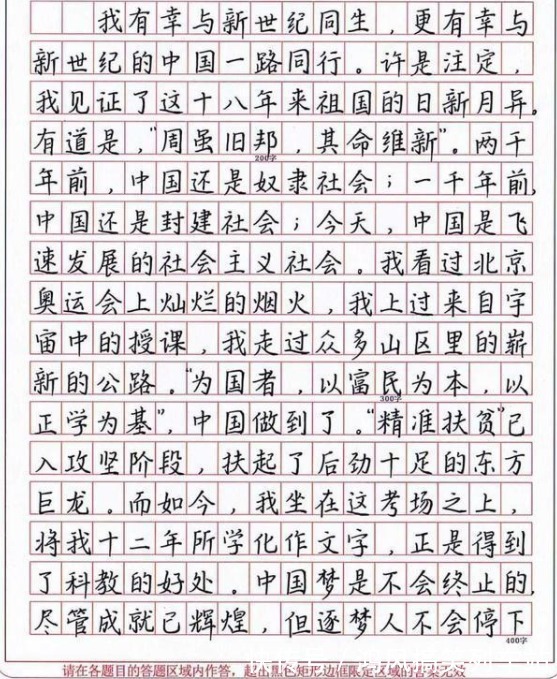 我有幸与新世纪同生，更有幸与
新世纪的中国一路同行。许是注定，
我见证了这十八年来祖国的日新月异。
有道是，“周虽旧邦，其命维新”。两千
200字
年前，中国还是奴隶社会；一千年前，
中国还是封建社会；今天，中国是飞
速发展的社会主义社会。我看过北京
奥运会上灿烂的烟火，我上过来自宇
宙中的授课，我走过众多山区里的崭
新的公路。“为国者，以富民为本，以
300字
正学为基”，中国做到了。“精准扶贫”已
入攻坚阶段，扶起了后劲十足的东方
巨龙。而如今，我坐在这考场之上，
将我十二年所学化作文字，正是得到
了科教的好处。中国梦是不会终止的，
尽管成就已辉煌，但逐梦人不会停下
400字
请在各题目的答题区域内作答，超出黑色矩形边框限定区域的答案无效